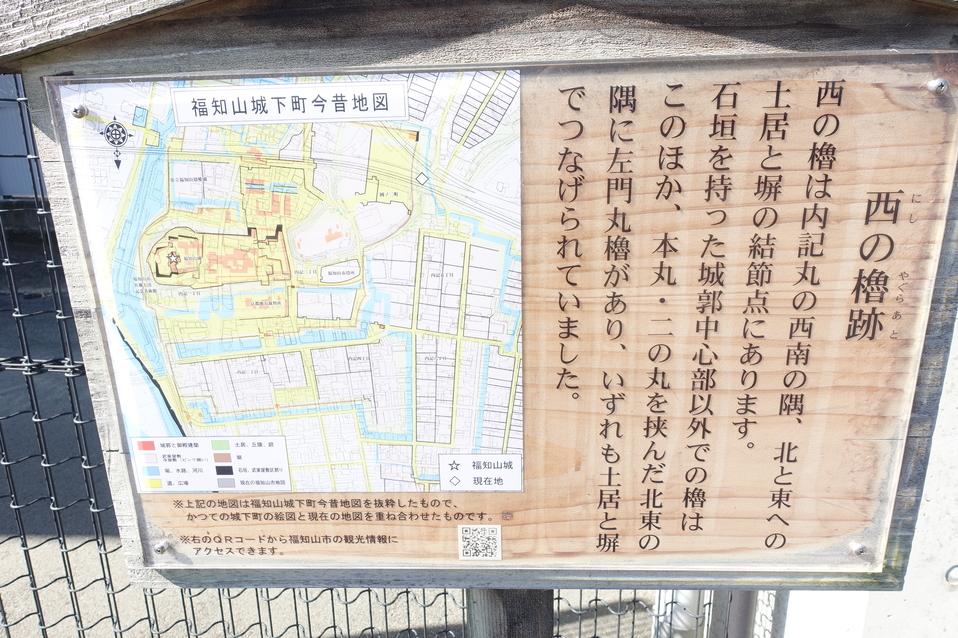 西の櫓跡
にし
やぐら
あと
西の櫓は内記丸の西南の隅、北と東への
土居と塀の結節点にあります。
石垣を持った城郭中心部以外での櫓は
このほか、本丸・二の丸を挟んだ北東の
隅に左門丸櫓があり、いずれも土居と塀
でつなげられていました。
福知山城下町今昔地図
岡ノ町
内記二丁目
内記一丁目
内記五丁目
内記三丁目
内記四丁目
城郭と御殿建築
土居、丘陵、藪
武家屋敷
堀、水路、河川
道、広場
現在の福知山市地図
☆ 福知山城
◇ 現在地
※上記の地図は福知山城下町今昔地図を抜粋したもので、
かつての城下町の絵図と現在の地図を重ね合わせたものです。
※右のQRコードから福知山市の観光情報に
アクセスできます。